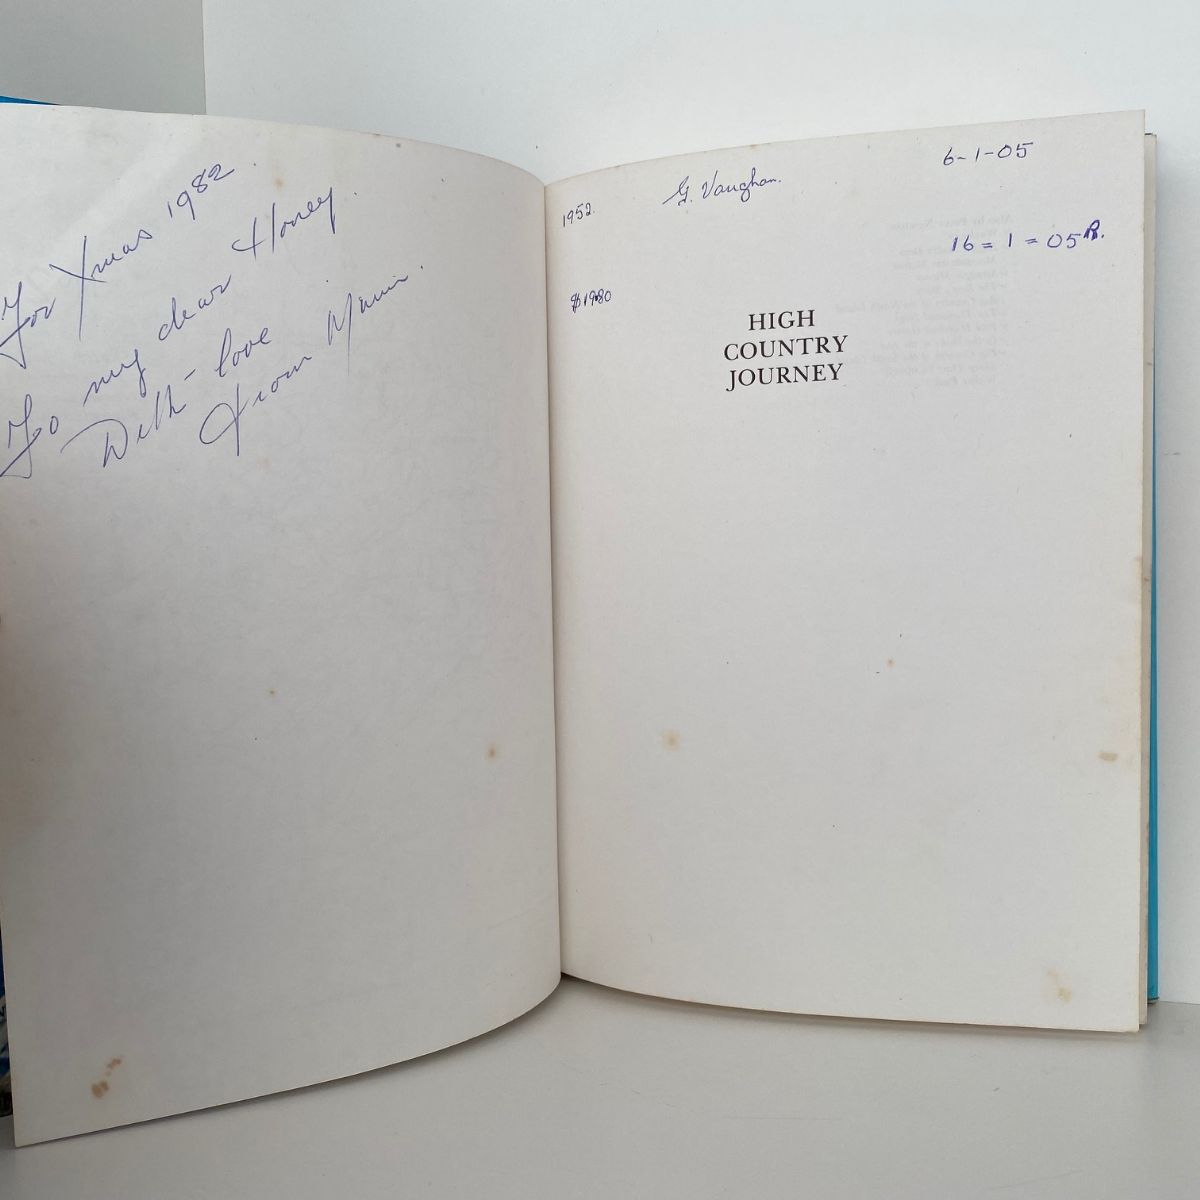 For Xmas 1982.
To my dear Honey.
With love
from
1952.
G. Vaughan.
6-1-05
16=1=05 R.
$19.80
HIGH
COUNTRY
JOURNEY